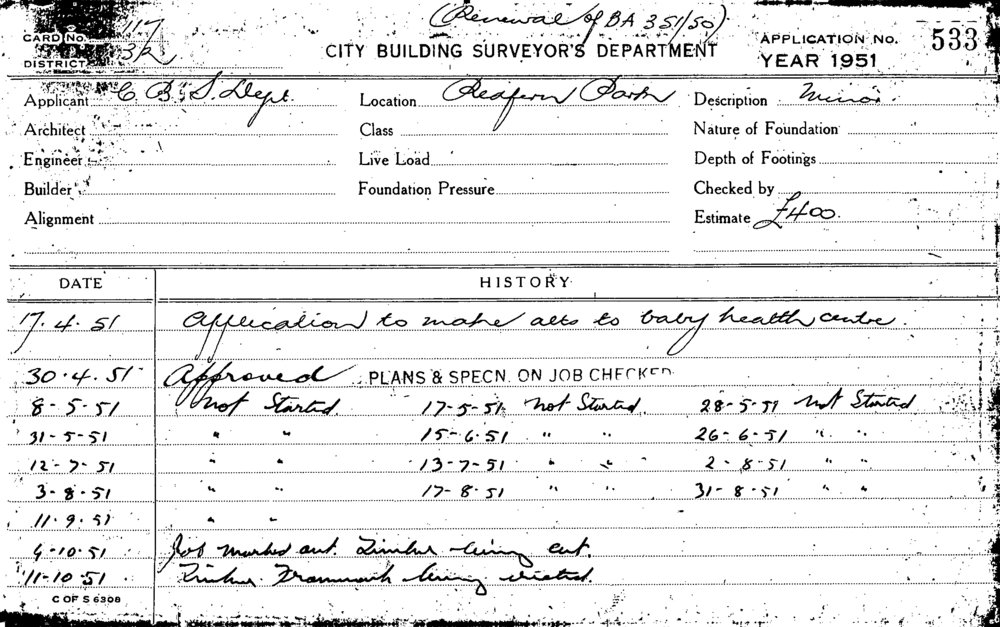 (Renewal of BA 351/50)
CARD No. 117
DISTRICT 3/2
CITY BUILDING SURVEYOR'S DEPARTMENT
APPLICATION No. 533
YEAR 1951
Applicant C B. S. Dept. Location Redfern Park Description Minor.
Architect Class Nature of Foundation
Engineer Live Load Depth of Footings
Builder Foundation Pressure Checked by
Alignment Estimate £400.
DATE HISTORY
17.4.51 Application to make alts to baby health centre.
30.4.51 Approved PLANS & SPECN. ON JOB CHECKED
8-5-51 Not Started. 17-5-51 Not Started. 28-5-51 Not Started
31-5-51 " " 15-6-51 " " 26-6-51 " "
12-7-51 " " 13-7-51 " " 2-8-51 " "
3-8-51 " " 17-8-51 " " 31-8-51 " "
11.9.51 " "
4-10-51 Job marked out. Timber being cut.
11-10-51 Timber Framework being erected.
C OF S 6308